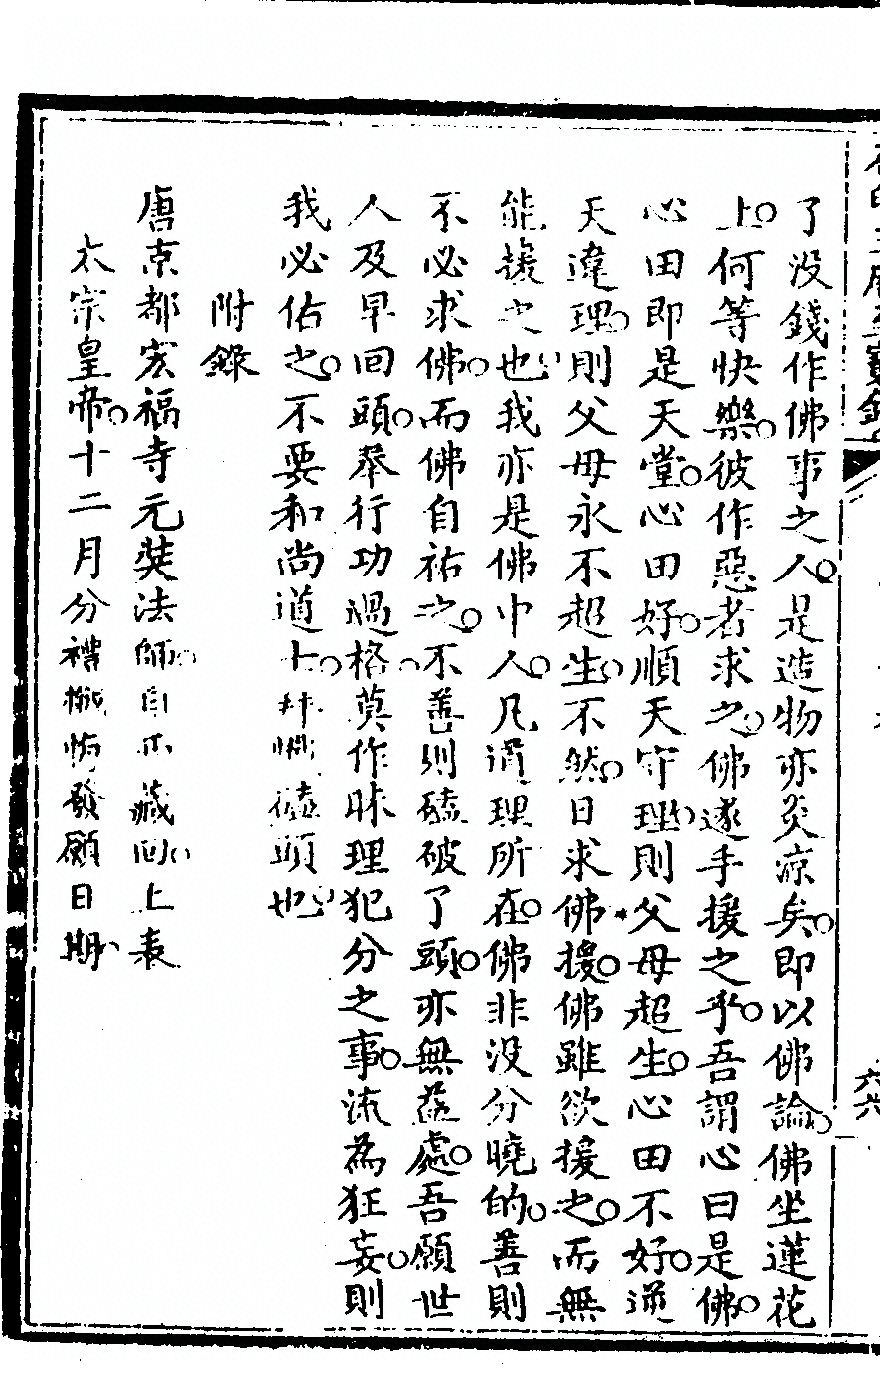 了没錢作佛事之人。是造物亦炎凉矣。即以佛論。佛坐蓮花
上。何等快樂。彼作惡者求之。佛遂手援之乎。吾謂心曰是佛。
心田即是天堂。心田好。順天守理。則父母超生。心田不好。逆
天違理。則父母永不超生。不然。日求佛援。佛雖欲援之。而無
能援之也。我亦是佛中人。凡道理所在。佛非没分曉的。善則
不必求佛。而佛自祐之。不善則磕破了頭。亦無益處。吾願世
人及早回頭。奉行功過格。莫作昧理犯分之事。流為狂妄。則
我必佑之。不要和尚道士。拜懺磕頭也。
附錄
唐京都宏福寺元奘法師。自西藏回。上表
太宗皇帝。十二月分禮懺悔發願日期。
六六